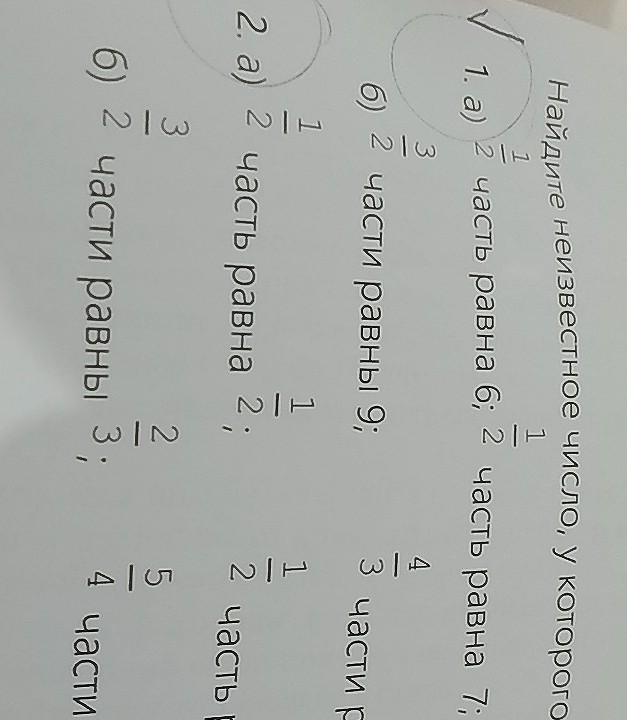 Найдите неизвестное число, у которого
1. а) 1/2 часть равна 6; 1/2 часть равна 7;
б) 3/2 части равны 9; 4/3 части р
2. а) 1/2 часть равна 1/2; 1/2 часть р
б) 3/2 части равны 2/3; 5/4 части